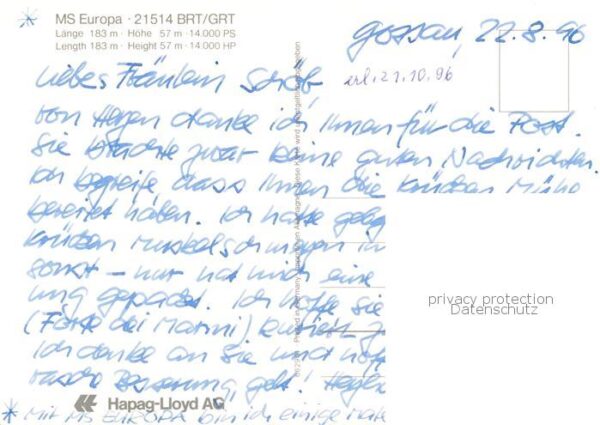 MS Europa · 21514 BRT/GRT
Länge 183 m · Höhe 57 m · 14.000 PS
Length 183 m · Height 57 m · 14.000 HP
Gossau, 22.8.96
erl. 21.10.96
Liebes Fräulein
von Herzen danke ich Ihnen für die Post.
Sie brachte zwar keine guten Nachrichten.
Ich begreife dass Ihnen die Krücken Mühe
bereitet haben. Ich hatte
Krücken Muskelschmerzen
sonst – nur hat mich eine
ung gepackt. Ich hoffe Sie
(Forte dei Marmi)
Ich danke an Sie und
rasche Besserung, gelt!
Hapag-Lloyd AG
Mit MS EUROPA bin ich einige
privacy protection
Datenschutz